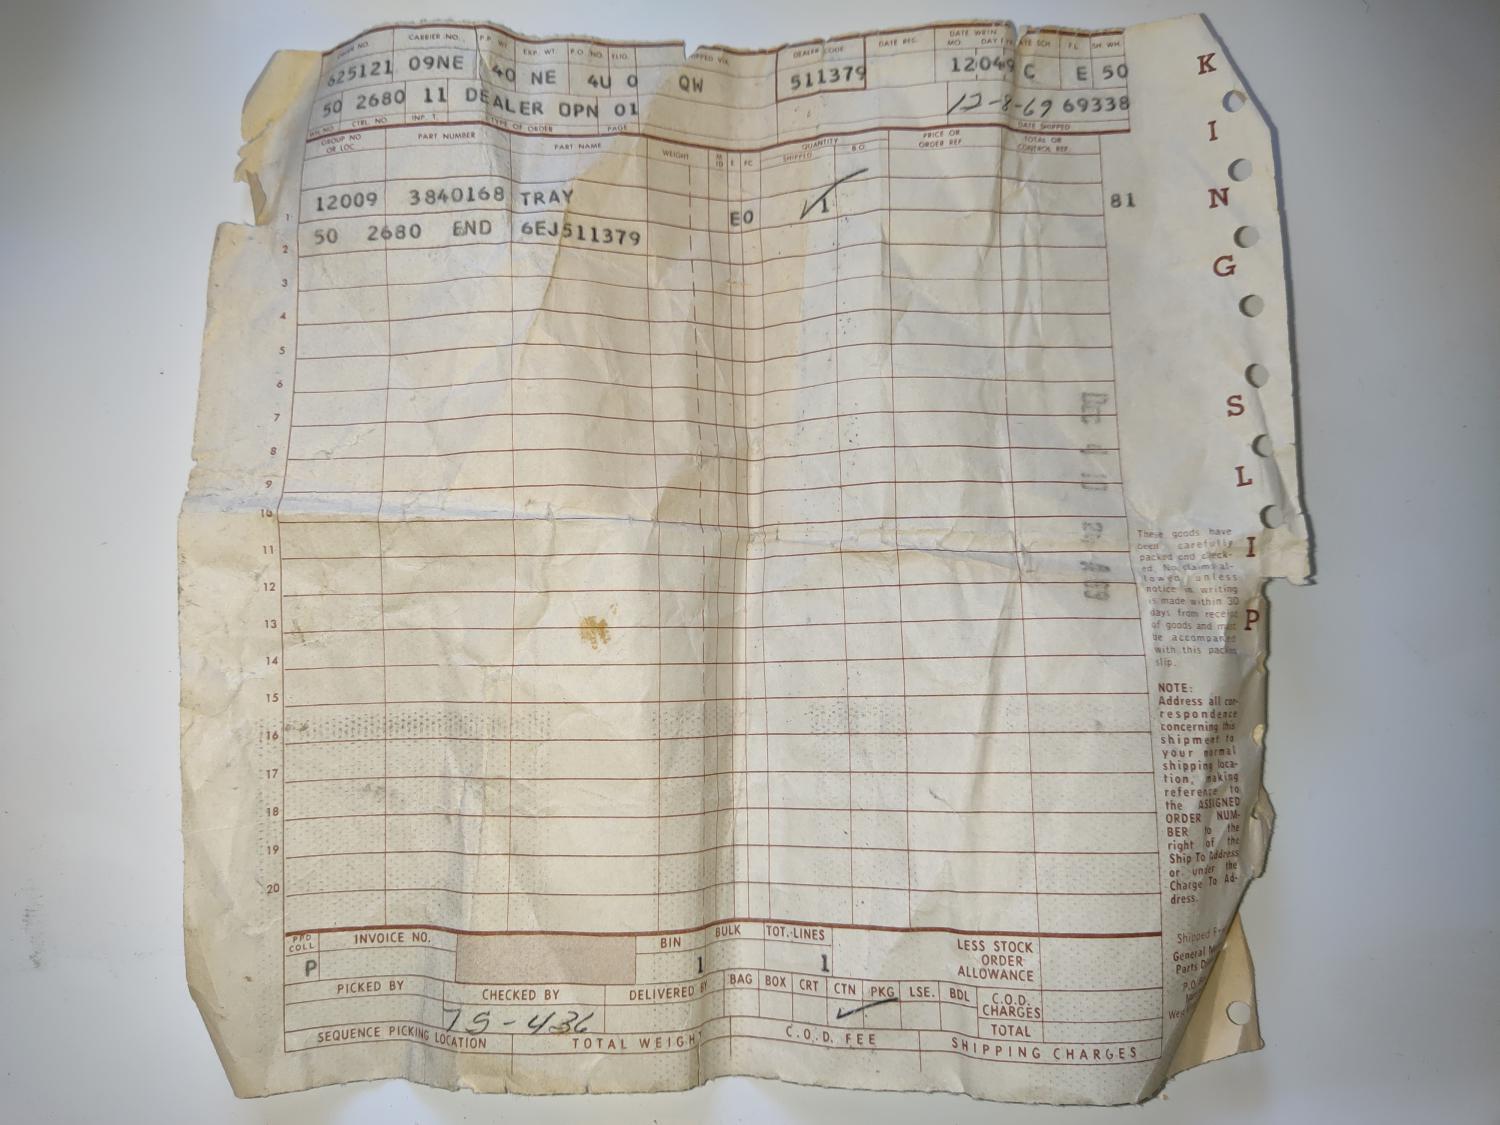 ORDER NO. CARRIER NO. P.P. WT. EXP. WT. P.O. NO. DEALER CODE DATE REC. DATE WRTN MO. DAY
625121 09NE 40 NE 4U 0 QW 511379 12049 C E 50
50 2680 11 DEALER OPN 01 12-8-69 69338
CTRL NO TYPE OF ORDER PAGE DATE SHIPPED
GROUP NO OR LOC PART NUMBER PART NAME WEIGHT QUANTITY SHIPPED B.O. PRICE OR ORDER REF TOTAL OR CONTROL REF.
1 12009 3840168 TRAY EO 1 81
2 50 2680 END 6EJ511379
3
4
5
6
7
8
9
10
11
12
13
14
15
16
17
18
19
20
DEC 4
K I N G S L I P
These goods have
been carefully
packed and check-
ed. No claims al-
lowed unless
notice in writing
is made within 30
days from receipt
of goods and must
be accompanied
with this packing
slip.
NOTE:
Address all cor-
respondence
concerning this
shipment to
your normal
shipping loca-
tion, making
reference to
the ASSIGNED
ORDER NUM-
BER to the
right of the
Ship To Address
or under the
Charge To Ad-
dress.
Shipped
General
Parts
PPD COLL INVOICE NO. BIN BULK TOT. LINES LESS STOCK ORDER ALLOWANCE
P 1 1
PICKED BY CHECKED BY DELIVERED BY BAG BOX CRT CTN PKG LSE. BDL C.O.D. CHARGES
75-436 TOTAL
SEQUENCE PICKING LOCATION TOTAL WEIGHT C.O.D. FEE SHIPPING CHARGES